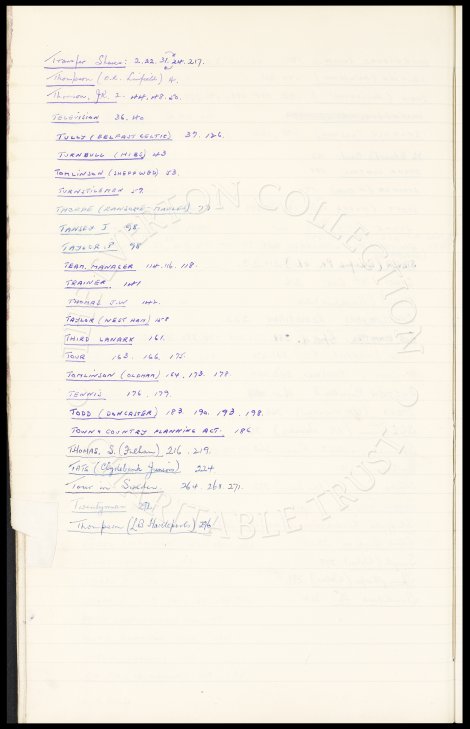 Transfer Shares: 2. 22. 214. 217.
Thompson (O.R. Linfield) 4.
Thomson, J. 44. 48. 50.
TELEVISION 36. 40
TULLY (BELFAST CELTIC) 37. 126.
TURNBULL (HIBS) 43
TOMLINSON (SHEFF WED) 53.
TURNSTILEMAN 57.
THORPE (RANSOME-MARLES) 73
TANSEY J 98.
TAYLOR. P. 98
TEAM. MANAGER 114. 116. 118.
TRAINER. 141
THOMAS J.W 142.
TAYLOR (WEST HAM) 158
THIRD LANARK 161.
TOUR 163. 166. 175.
TOMLINSON (OLDHAM) 164. 173. 178.
TENNIS 176. 179.
TODD (DONCASTER) 183. 190. 193. 198.
TOWN & COUNTRY PLANNING ACT. 186
THOMAS, S. (Fulham) 216. 219.
TATE (Clydebank Juniors) 224
Tour in Sweden 264. 268. 271.
Twentyman 272
Thompson (LB Hartlepools) 296
WOLVERTON COLLECTION
CHARITABLE TRUST